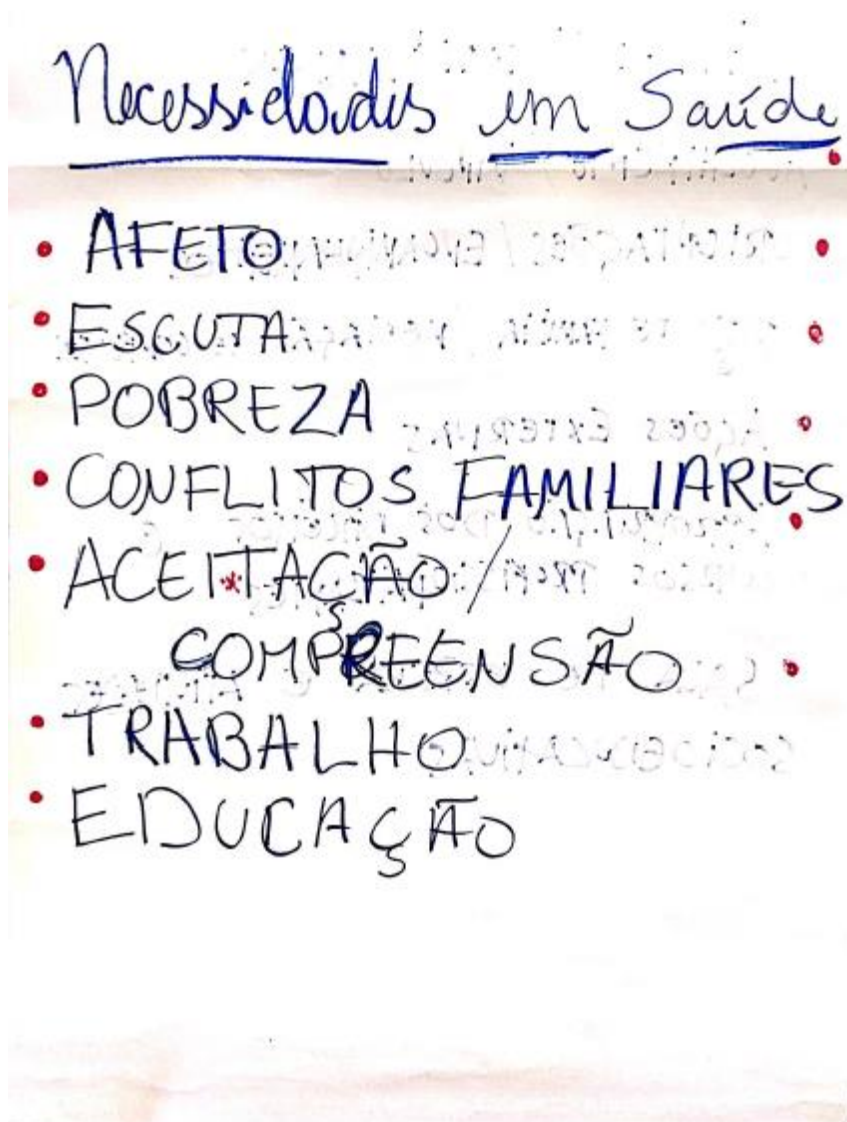 Necessidades em Saúde
• AFETO
• ESCUTA
• POBREZA
• CONFLITOS FAMILIARES
• ACEITAÇÃO /
COMPREENSÃO
• TRABALHO
• EDUCAÇÃO